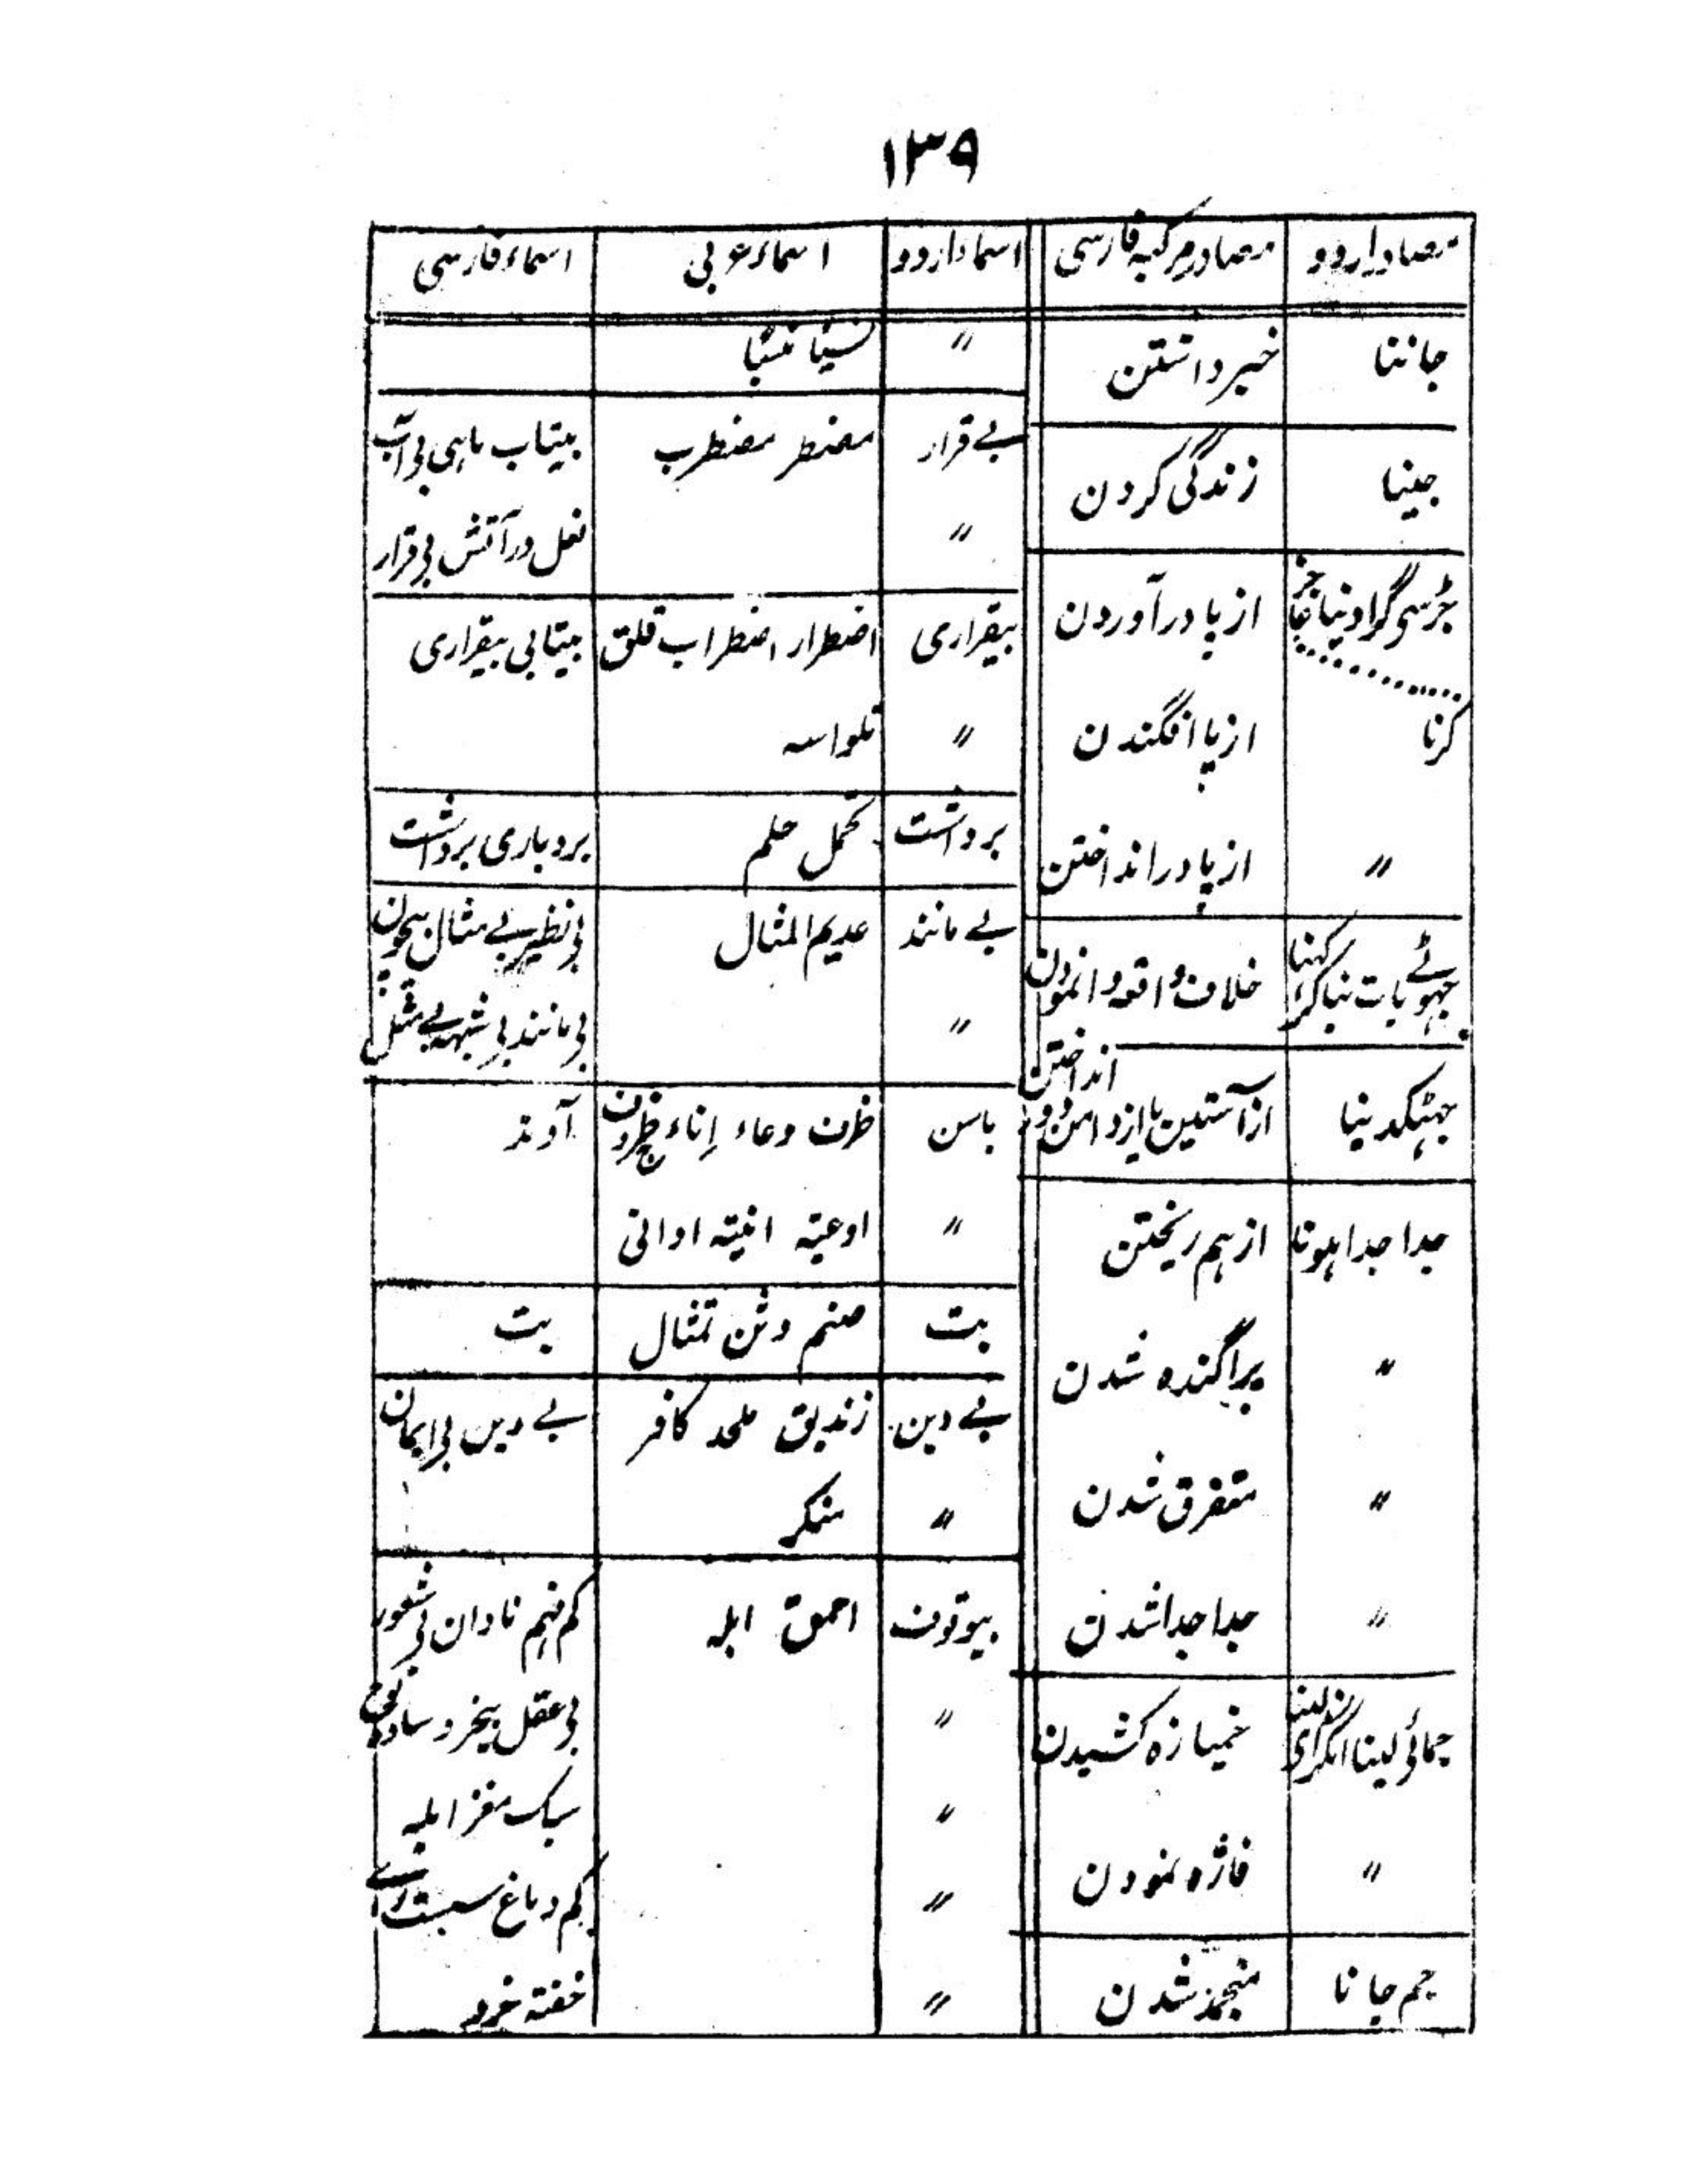 ۱۳۹
مصادر اردو | مصادر مرکبه فارسی | اسماء اردو | اسماء عربی | اسماء فارسی
جاننا | خبر داشتن
جینا | زندگی کردن
جڑسی گرا دینا عاجز | از پا در آوردن
کرنا | از پا افگندن
〃 | از پا در انداختن
جهوٹے بات بناکر کهنا | خلاف واقعه وانمودن
انداختن
جهٹکدینا | از آستین یا از دامن دور
جدا جدا ہونا | از ہم ریختن
〃 | پراگنده شدن
〃 | متفرق شدن
〃 | جدا جدا شدن
جمائی لینا انگڑای لینا | خمیازه کشیدن
〃 | فاژه نمودن
جم جانا | منجمد شدن
〃 | نسیا منسیا
بے قرار | مضطر مضطرب | بیتاب ماہی بی آب
〃 | نعل در آتش بی قرار
بیقراری | اضطرار اضطراب قلق | بیتابی بیقراری
〃 | تلواسہ
برداشت | تحمل حلم | بردباری برداشت
بے مانند | عدیم المثال | بی نظیر بے مثال بیچون
〃 | بی مانند بی شبہ بے مثل
باسن | ظرف وعاء اِناء ج ظروف | آوند
〃 | اوعیتہ انیتہ اوانی
بت | صنم وثن تمثال | بت
بے دین | زندیق ملحد کافر | بے دین بی ایمان
〃 | منکر
بیوقوف | احمق ابلہ | کم فہم نادان بی شعور
〃 | بی عقل بیخرد ساده لوح
〃 | سبک مغز ابلہ
〃 | کم دماغ سست راے
〃 | خفتہ خرد